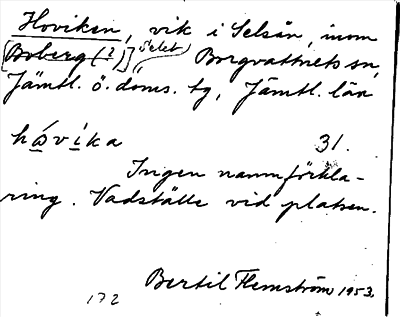 Hoviken, vik i Selsån, inom
[Boberg (?)] Selet, Borgvattnets sn,
Jämtl. ö. doms. tg, Jämtl. län
hóvika 31.
Ingen namnförkla-
ring. Vadställe vid platsen.
Bertil Flemström 1953.
172